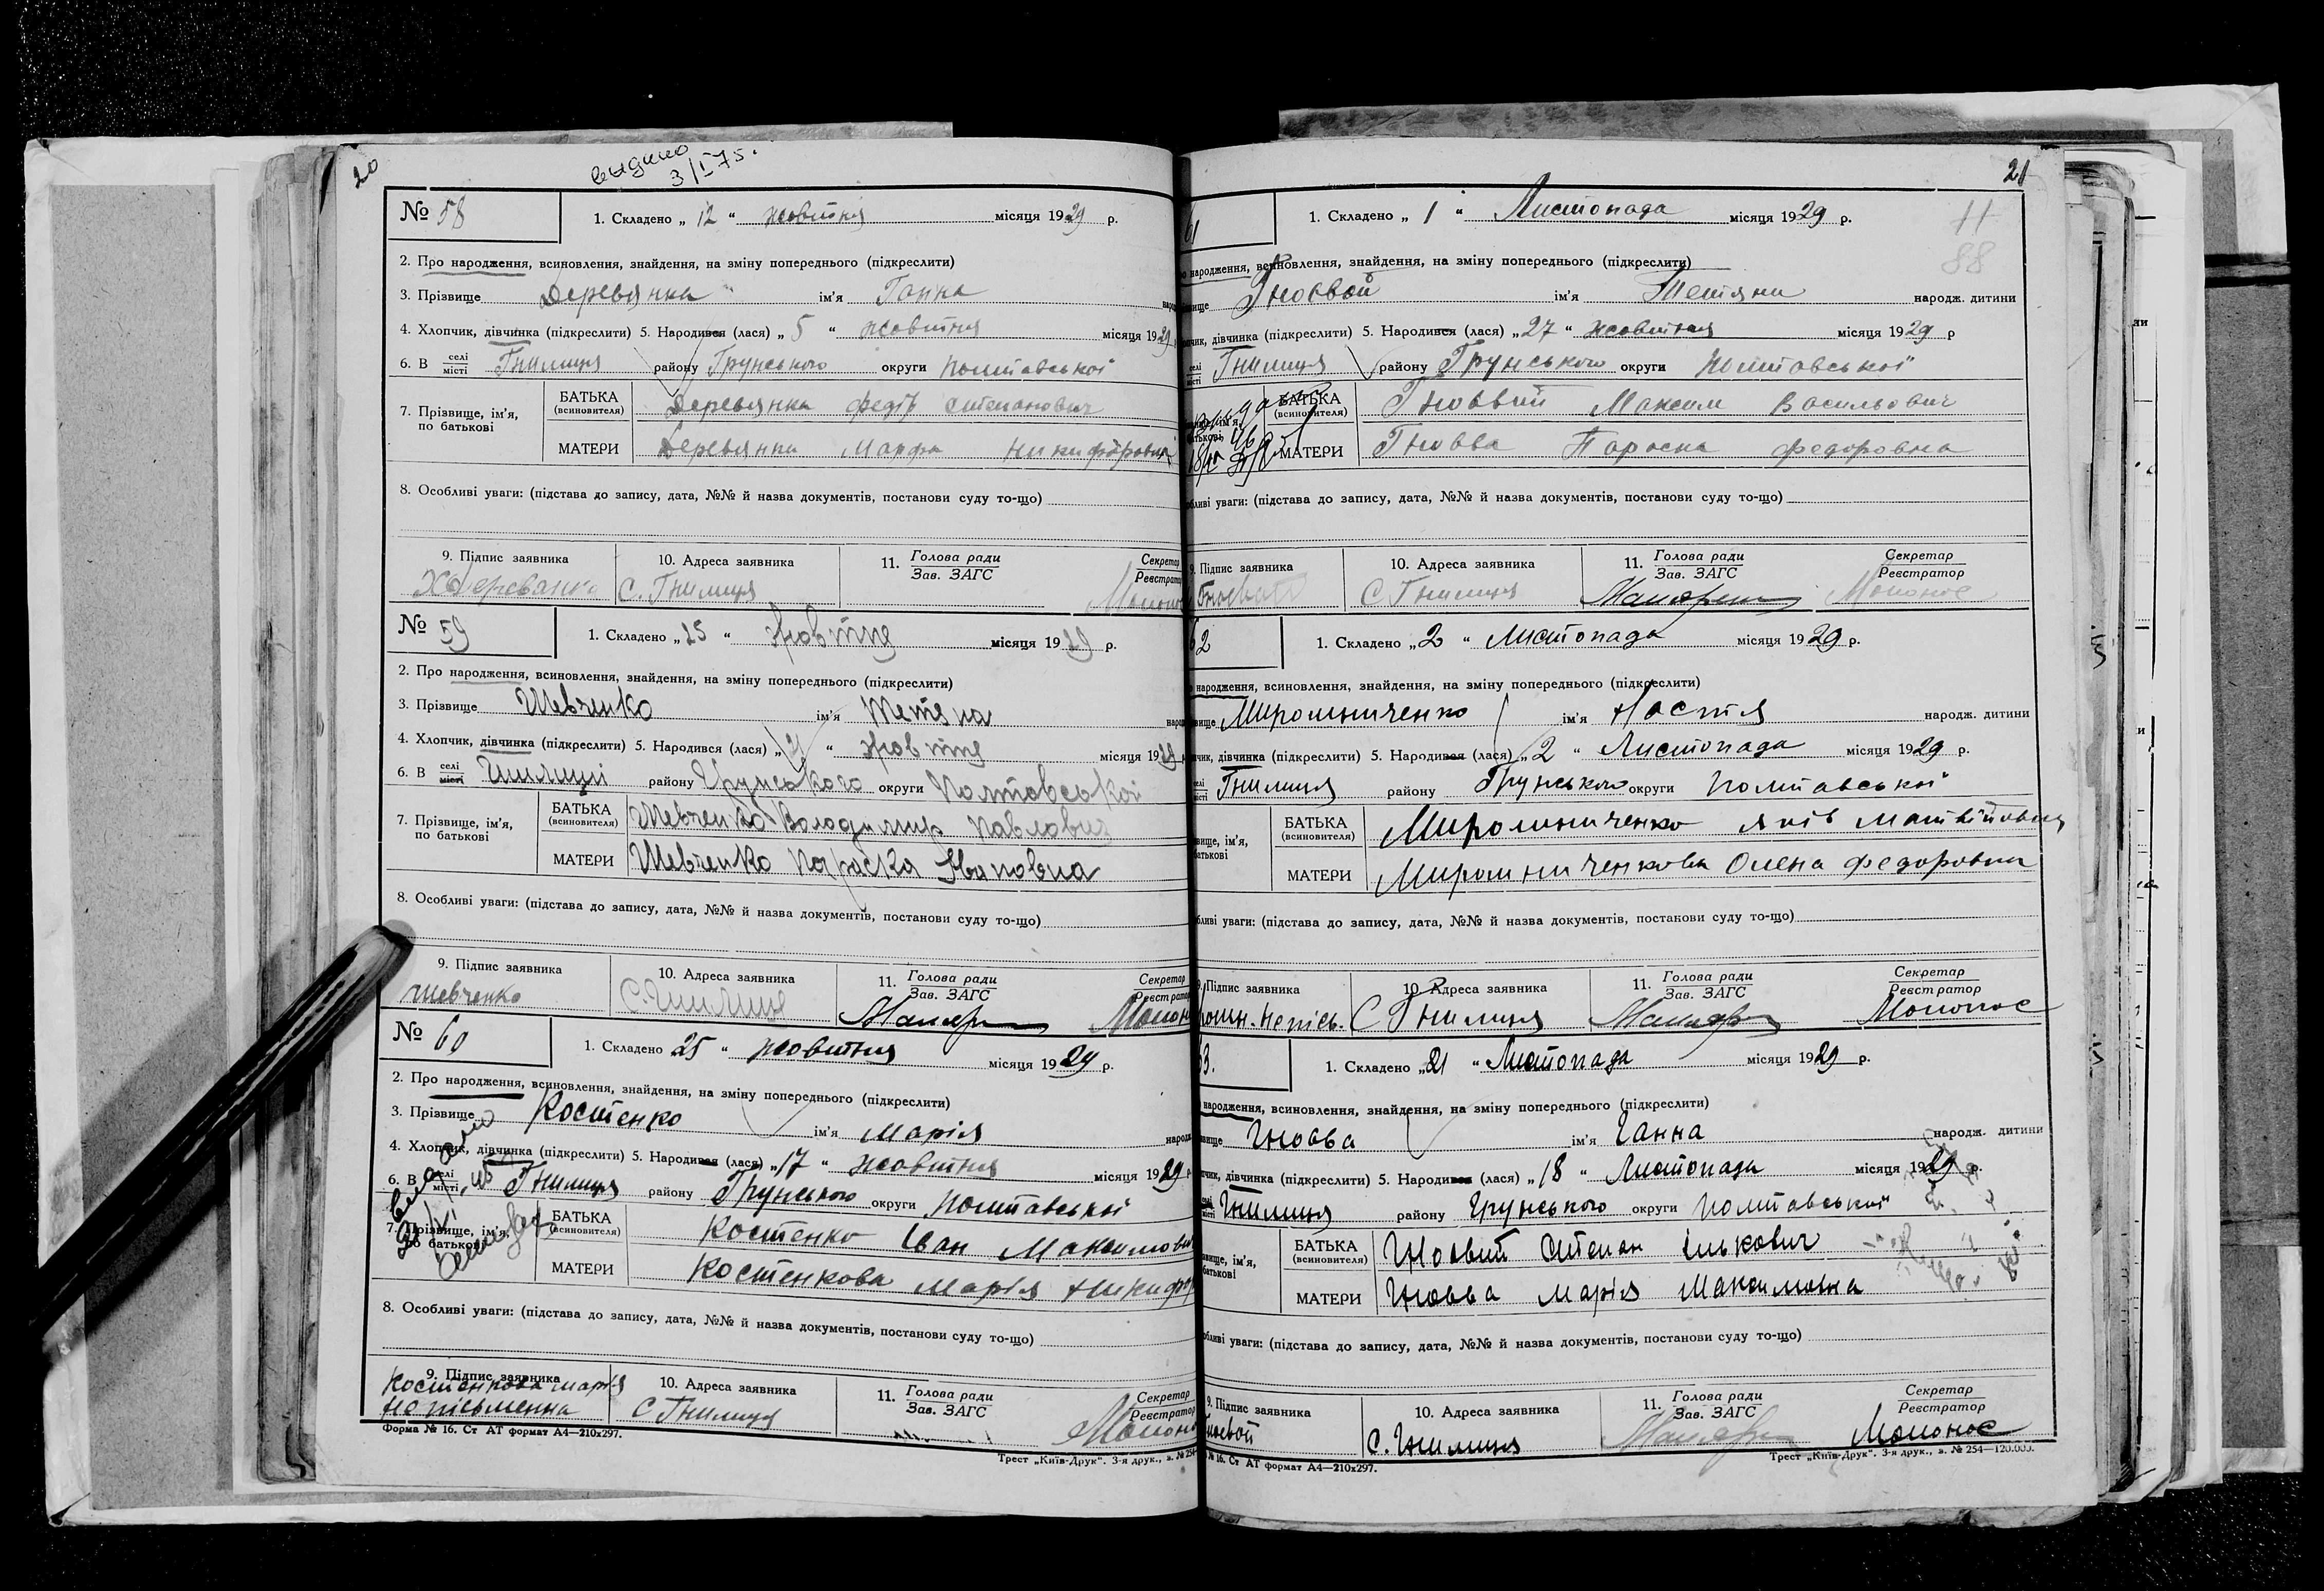 20
выдано
3/I 75.
№ 58
1. Складено „ 12 “ жовтня місяця 1929 р.
2. Про народження, всиновлення, знайдення, на зміну попереднього (підкреслити)
3. Прізвище Деревянка ім'я Ганна народ
4. Хлопчик, дівчинка (підкреслити) 5. Народився (лася) „ 5 “ жовтня місяця 1929
6. В селі місті Гнилиця району Грунського округи Полтавської
7. Прізвище, ім'я, по батькові
БАТЬКА (всиновителя) Деревянка Федір Степанович
МАТЕРИ Деревянка Марфа Никифоровна
8. Особливі уваги: (підстава до запису, дата, №№ й назва документів, постанови суду то-що)
9. Підпис заявника 10. Адреса заявника 11. Голова ради Зав. ЗАГС Секретар Реєстратор
С. Гнилиця
№ 59
1. Складено „ 25 “ Жовтня місяця 1929 р.
2. Про народження, всиновлення, знайдення, на зміну попереднього (підкреслити)
3. Прізвище Шевченко ім'я Тетяна народ
4. Хлопчик, дівчинка (підкреслити) 5. Народився (лася) „ “ Жовтня місяця 1929
6. В селі місті Гнилиці району Грунського округи Полтавської
7. Прізвище, ім'я, по батькові
БАТЬКА (всиновителя) Шевченко Володимир Павлович
МАТЕРИ Шевченко Параска Івановна
8. Особливі уваги: (підстава до запису, дата, №№ й назва документів, постанови суду то-що)
9. Підпис заявника 10. Адреса заявника 11. Голова ради Зав. ЗАГС Секретар Реєстратор
Шевченко С. Гнилиця
№ 60
1. Складено 25 “ жовтня місяця 1929 р.
2. Про народження, всиновлення, знайдення, на зміну попереднього (підкреслити)
3. Прізвище Костенко ім'я Марія народ
4. Хлопчик, дівчинка (підкреслити) 5. Народився (лася) „ 17 “ жовтня місяця 1929 р
6. В селі місті Гнилиця району Грунського округи Полтавської
7. Прізвище, ім'я, по батькові
БАТЬКА (всиновителя) Костенко Іван Максимович
МАТЕРИ Костенкова Марія Никифор
8. Особливі уваги: (підстава до запису, дата, №№ й назва документів, постанови суду то-що)
9. Підпис заявника 10. Адреса заявника 11. Голова ради Зав. ЗАГС Секретар Реєстратор
Костенкова Марія
не письменна С Гнилиця
Форма № 16. Ст АТ формат А4—210х297.
Трест „Київ-Друк“. 3-я друк., з. № 254
21
11
88
61
1. Складено „ 1 “ Листопада місяця 1929 р.
народження, всиновлення, знайдення, на зміну попереднього (підкреслити)
Гноєвой ім'я Тетяни народж. дитини
дівчинка (підкреслити) 5. Народився (лася) „ 27 “ жовтня місяця 1929 р
селі місті Гнилиця району Грунського округи Полтавської
БАТЬКА (всиновителя) Гноєвий Максим Васильович
МАТЕРИ Гноєва Параска Федоровна
уваги: (підстава до запису, дата, №№ й назва документів, постанови суду то-що)
9. Підпис заявника 10. Адреса заявника 11. Голова ради Зав. ЗАГС Секретар Реєстратор
С Гнилиця Мононос
62
1. Складено „ 2 “ Листопада місяця 1929 р.
народження, всиновлення, знайдення, на зміну попереднього (підкреслити)
Мирошниченко ім'я Настя народж. дитини
дівчинка (підкреслити) 5. Народився (лася) „ 2 “ Листопада місяця 1929 р.
селі місті Гнилиця району Грунського округи Полтавської
БАТЬКА (всиновителя) Мирошниченко Яків Матвійович
МАТЕРИ Мирошниченкова Олена Федоровна
уваги: (підстава до запису, дата, №№ й назва документів, постанови суду то-що)
9. Підпис заявника 10. Адреса заявника 11. Голова ради Зав. ЗАГС Секретар Реєстратор
С Гнилиця Мононос
63.
1. Складено „ 21 “ Листопада місяця 1929 р.
народження, всиновлення, знайдення, на зміну попереднього (підкреслити)
Гноєва ім'я Ганна народж. дитини
дівчинка (підкреслити) 5. Народився (лася) „ 18 “ Листопада місяця 1929 р.
селі місті Гнилиця району Грунського округи Полтавської
БАТЬКА (всиновителя) Гноєвий Степан Ількович
МАТЕРИ Гноєва Марія Максимовна
уваги: (підстава до запису, дата, №№ й назва документів, постанови суду то-що)
9. Підпис заявника 10. Адреса заявника 11. Голова ради Зав. ЗАГС Секретар Реєстратор
С. Гнилиця Мононос
№ 16. Ст АТ формат А4—210х297.
Трест „Київ-Друк“. 3-я друк., з. № 254—120.000.